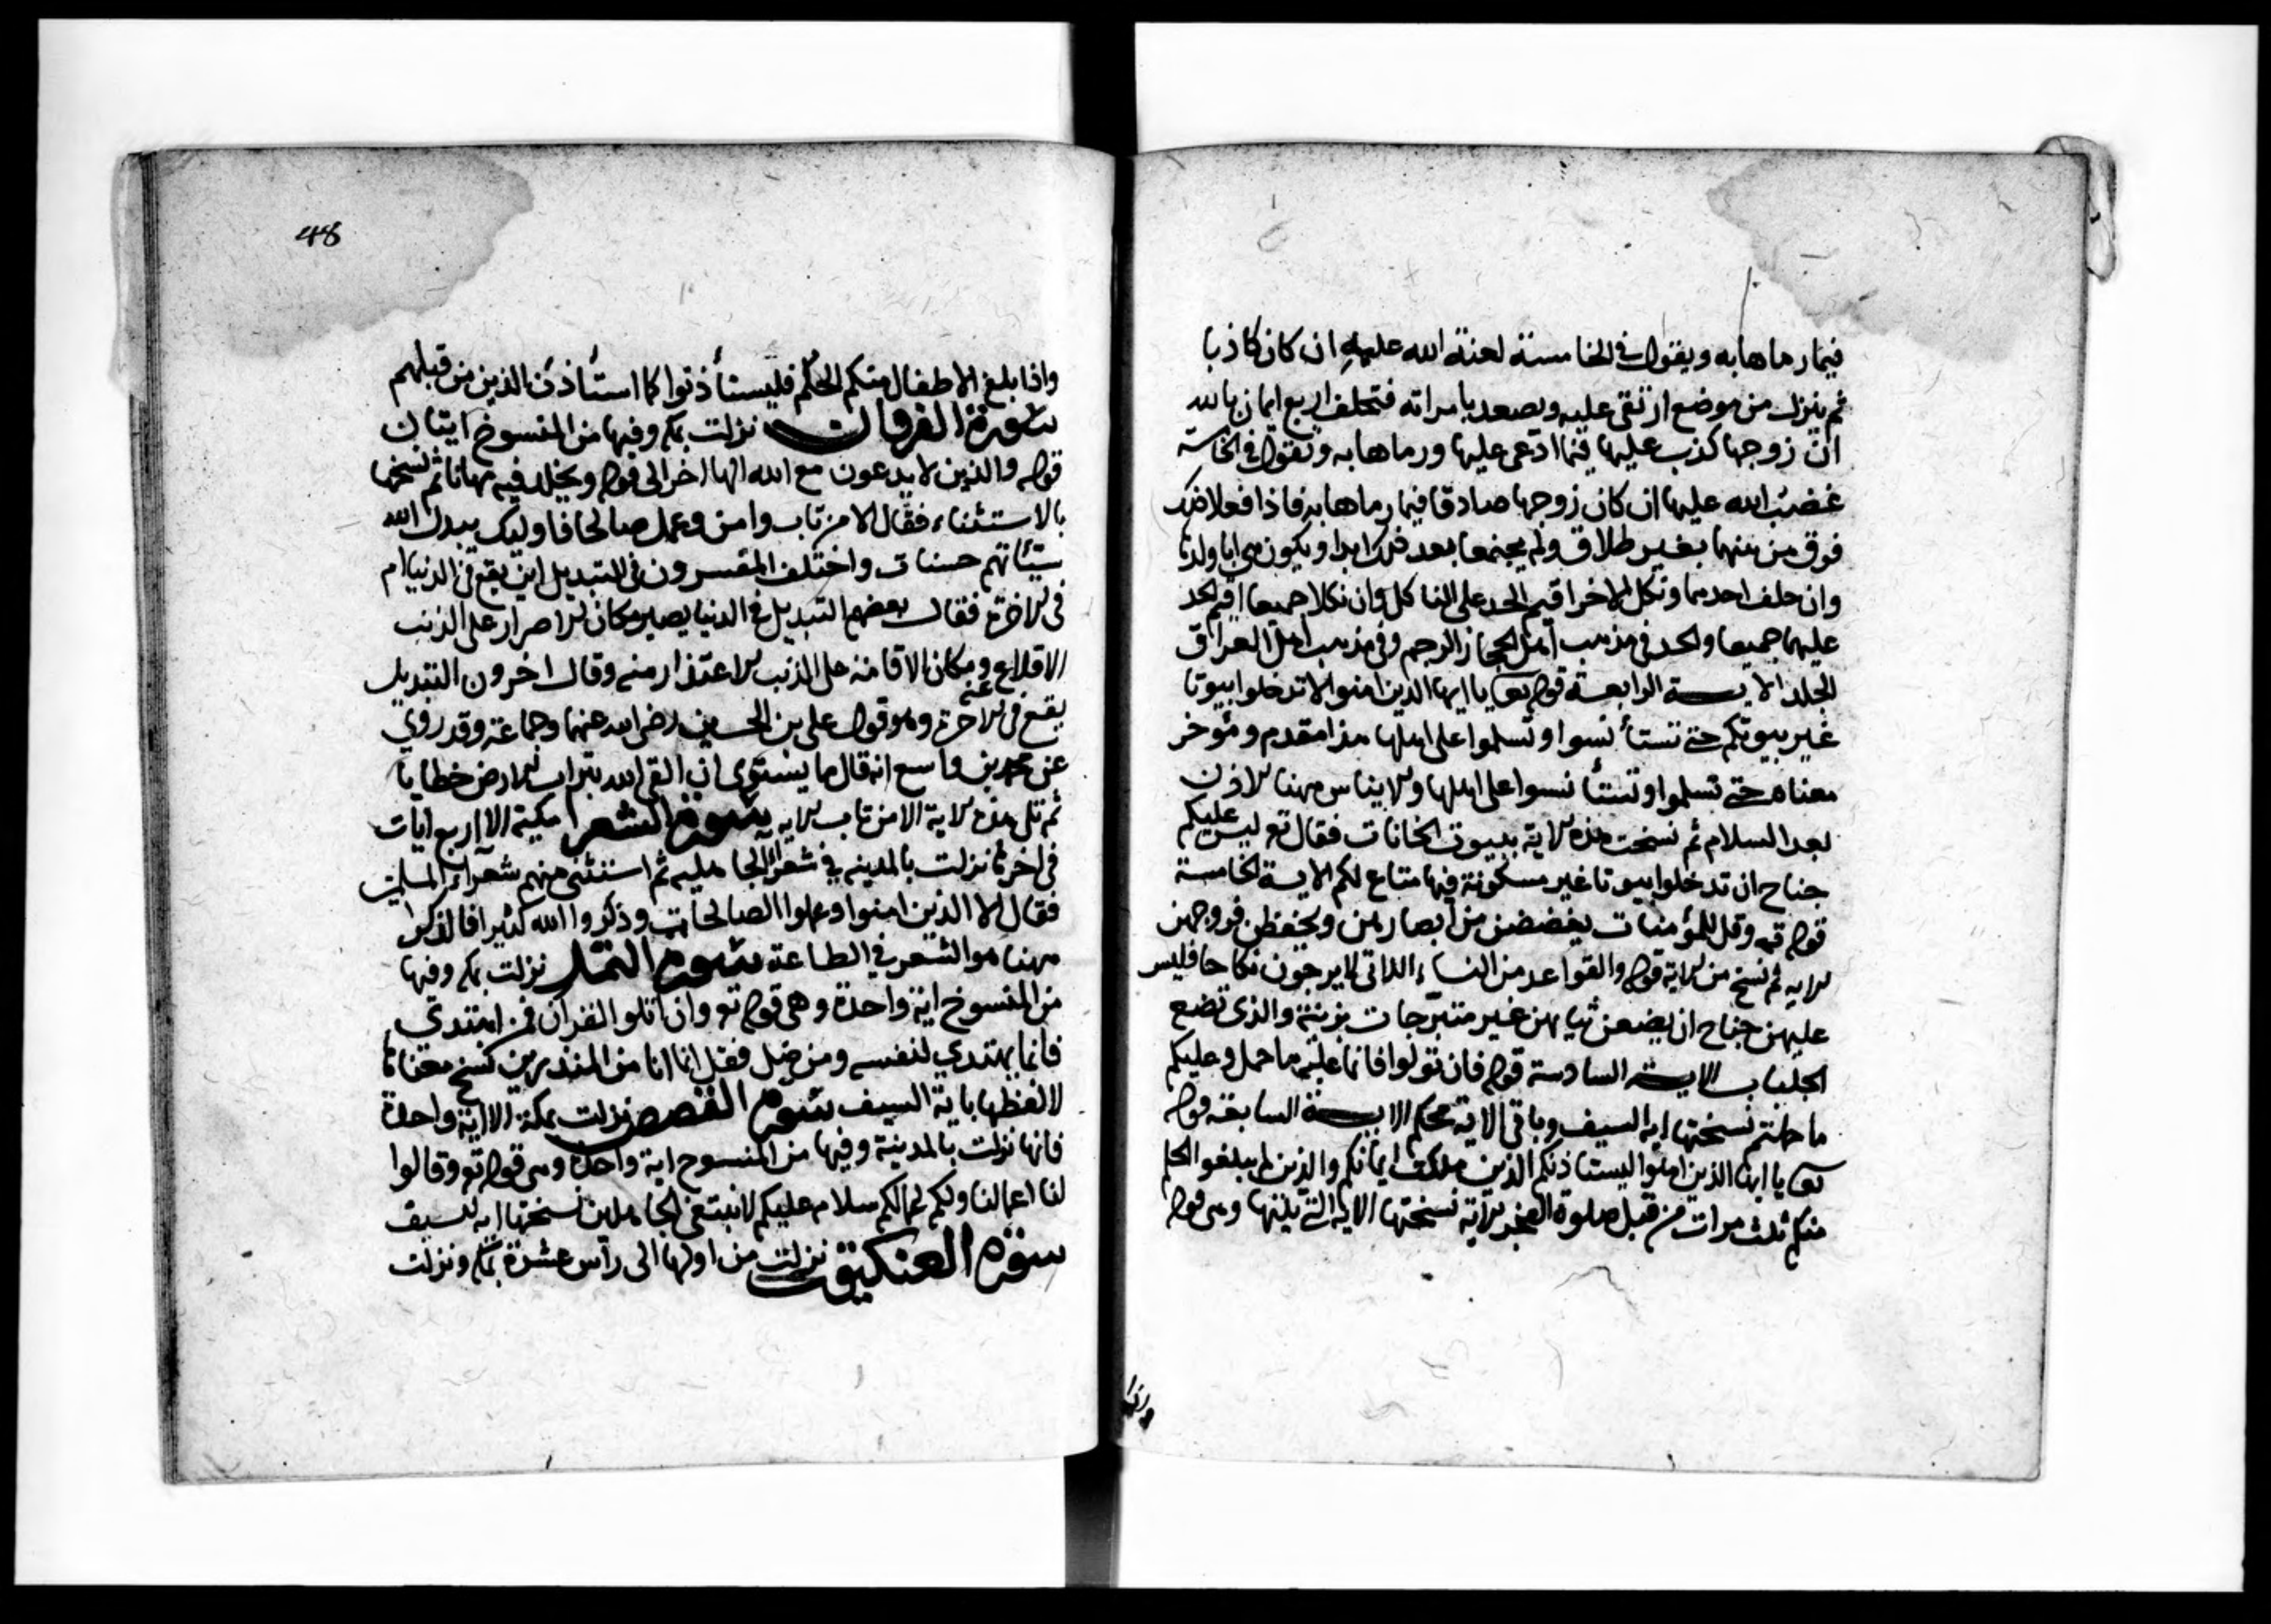 فيما رماها به ويقول في الخامسة لعنة الله عليه ان كان كاذبا
ثم ينزل من موضع ارتقى عليه ويصعد بامراته فتحلف اربع ايمان بالله
ان زوجها كذب عليها فيما ادعى عليها ورماها به وتقول في الخامسة
غضب الله عليها ان كان زوجها صادقا فيما رماها به فاذا فعلا ذلك
فرق من بينهما بغير طلاق ولم يجتمعا بعد ذلك ابدا ويكون
وان حلف احدهما ونكل الاخر اقيم الحد على الناكل وان نكلا جميعا اقيم الحد
عليهما جميعا والحد في مذهب اهل الحجاز الرجم وفي مذهب اهل العراق
الجلد الايــة الرابعة قوله تعا يا ايها الذين امنوا لا تدخلوا بيوتا
غير بيوتكم حتى تستأنسوا وتسلموا على اهلها هذا مقدم ومؤخر
معناه حتى تسلموا وتستأنسوا على اهلها والايناس مهنا الاذن
بعد السلام ثم نسخت هذه الاية ببيوت الخانات فقال تع ليس عليكم
جناح ان تدخلوا بيوتا غير مسكونة فيها متاع لكم الايــة الخامسة
قوله تع وقل للمؤمنات يغضضن من ابصارهن ويحفظن فروجهن
الايه ثم نسخ من الاية قوله والقواعد من النساء اللاتى لا يرجون نكاحا فليس
عليهن جناح ان يضعن ثيابهن غير متبرجات بزينة والذى تضع
الجلباب الايــة السادسة قوله فان تولوا فانما عليه ما حمل وعليكم
ما حملتم نسختها اية السيف وباقى الاية محكم الايــة السابعة قوله
تعا يا ايها الذين امنوا ليستاذنكم الذين ملكت ايمانكم والذين لم يبلغوا الحلم
منكم ثلث مرات من قبل صلوة الفجر الاية نسختها الاية التى يليها وهى قوله
واذا
48
واذا بلغ الاطفال منكم الحلم فليستأذنوا كما استأذن الذين من قبلهم
سورة الفرقان نزلت بمكه وفيها من المنسوخ ايتان
قوله والذين لا يدعون مع الله الها اخر الى قوله ويخلد فيه مهانا ثم نسخها
بالاستثناء فقال الا من تاب وامن وعمل صالحا فاوليك يبدل الله
سيئاتهم حسنات واختلف المفسرون فى التبديل اين يقع فى الدنيا ام
فى الاخرة فقال بعضهم التبديل في الدنيا يصير مكان الاصرار على الذنب
الاقلاع ومكان الاقامة على الذنب الاعتذار منه وقال اخرون التبديل
يقع فى الاخرة وهو قول على بن الحسين رضى الله عنهما وجماعة وقد روي
عن محمد بن واسع انه قال ما يسنوى ان القى الله بتراب الارض خطايا
ثم تلى هذه الاية الا من تاب الايه سورة الشعرا مكية الا اربع ايات
فى اخرها نزلت بالمدينه في شعراء الجاهليه ثم استثنى منهم شعراء المسلمين
فقال الا الذين امنوا وعملوا الصالحات وذكروا الله كثيرا فالذكر
مهنا هو الشعر في الطاعة سورة النمل نزلت بمكه وفيها
من المنسوخ اية واحدة وهى قوله تع وان اتلو القران فمن اهتدي
فانما يهتدي لنفسه ومن ضل فقل انما انا من المنذرين نسخ معناها
لا لفظها باية السيف سورة القصص نزلت بمكة الا اية واحدة
فانها نزلت بالمدينة وفيها من المنسوح اية واحدة وهى قوله تع وقالوا
لنا اعمالنا ولكم اعمالكم سلام عليكم لا نبتغى الجاهلين نسختها ايه السيف
سورة العنكبوت نزلت من اولها الى رأس عشرة بمكه ونزلت